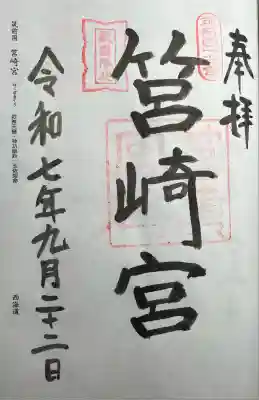 奉拝
筥崎宮
令和七年九月二十二日
筑前国 筥崎宮
西海道